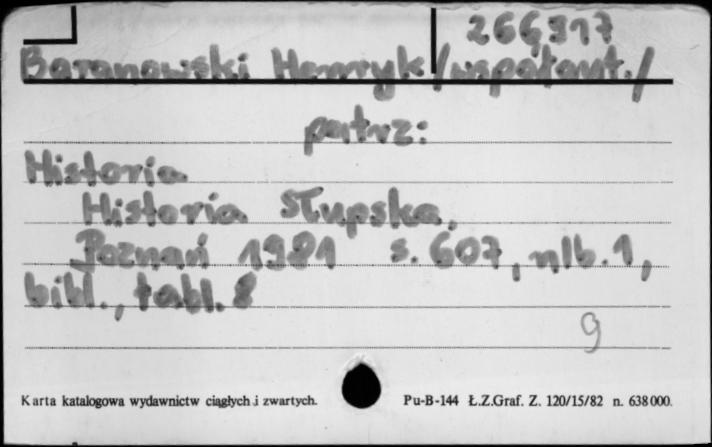 266317
Baranowski Henryk /współaut./
patrz:
Historia
Historia Słupska.
Poznań 1981 s. 607, nlb. 1,
bibl., tabl. 8
9
Karta katalogowa wydawnictw ciągłych i zwartych. Pu-B-144 Ł.Z.Graf. Z. 120/15/82 n. 638000.